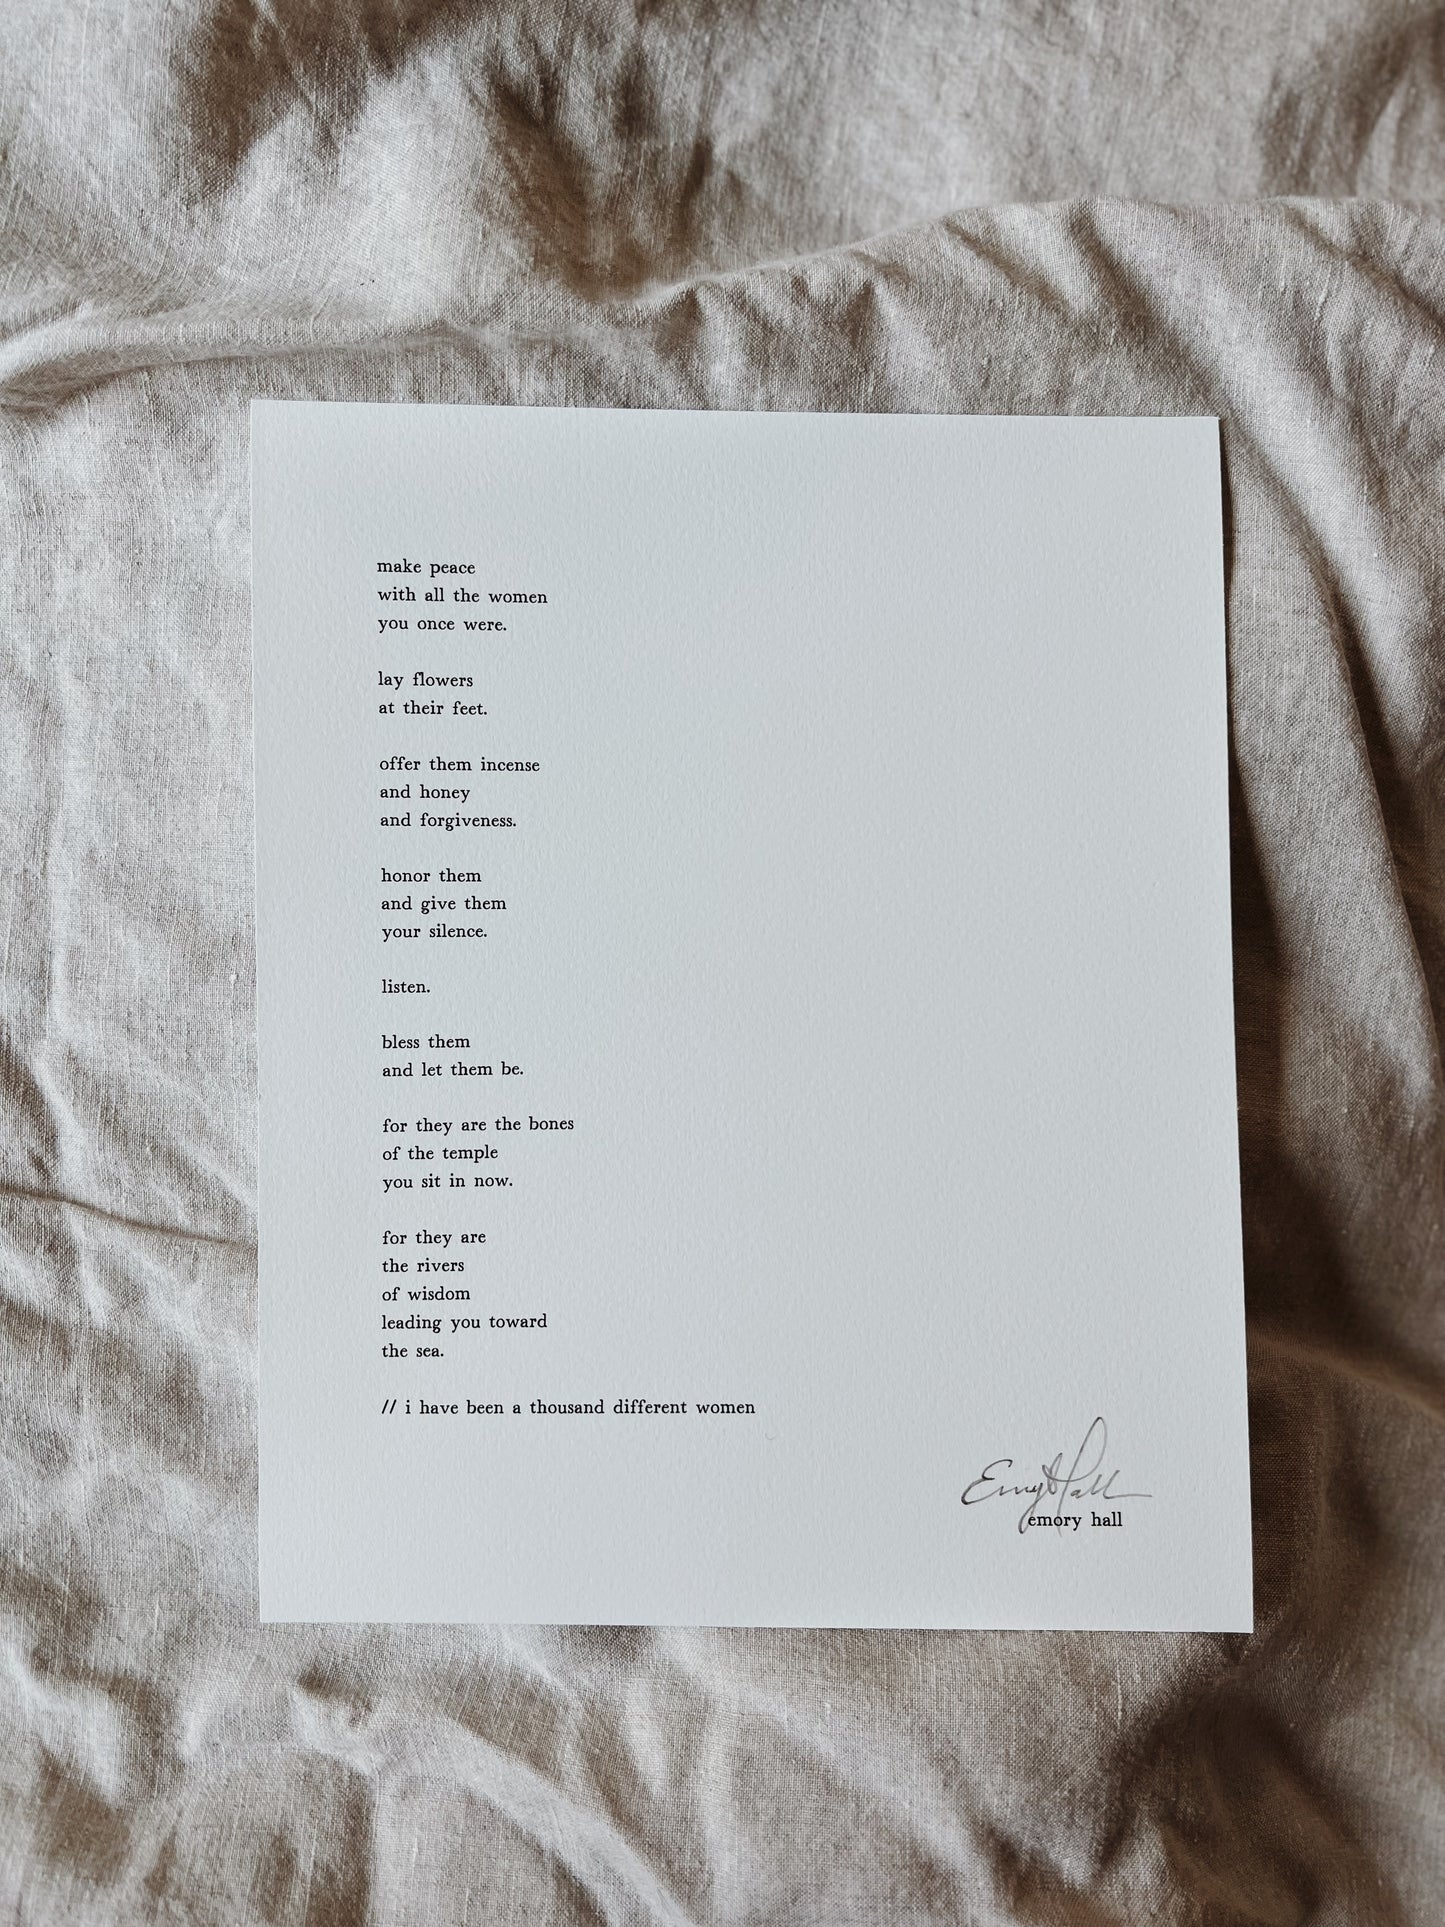 make peace
with all the women
you once were.
lay flowers
at their feet.
offer them incense
and honey
and forgiveness.
honor them
and give them
your silence.
listen.
bless them
and let them be.
for they are the bones
of the temple
you sit in now.
for they are
the rivers
of wisdom
leading you toward
the sea.
// i have been a thousand different women
Emory Hall
emory hall